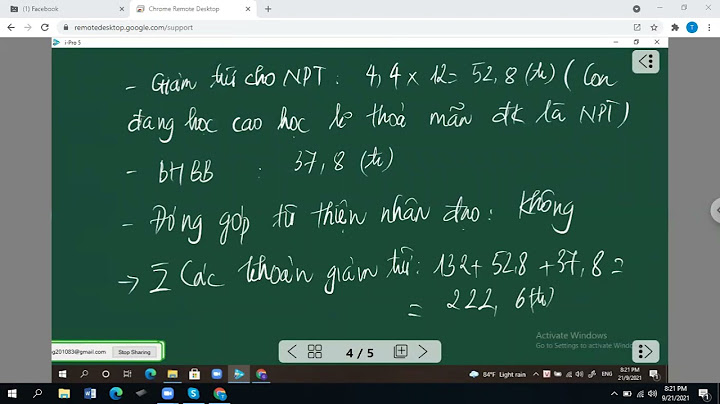 (1) Facebook
Chrome Remote Desktop
remotedesktop.google.com/support
i-Pro 5
- Giảm trừ cho NPT : 4,4 × 12 = 52,8 (tr) ( Con
đang học cao học là thoả mãn đk là NPT)
- BHBB : 37,8 (tr)
- Đóng góp từ thiện nhân đạo : Không
→ Σ Các khoản giảm trừ : 132 + 52,8 + 37,8 =
= 222,6 (tr)
Activate Windows
Go to Settings to activate Windows
g201083@gmail.com Stop Sharing
4 / 5
84°F Light rain
ENG
8:21 PM
21/9/2021
8:21 PM
9/21/2021